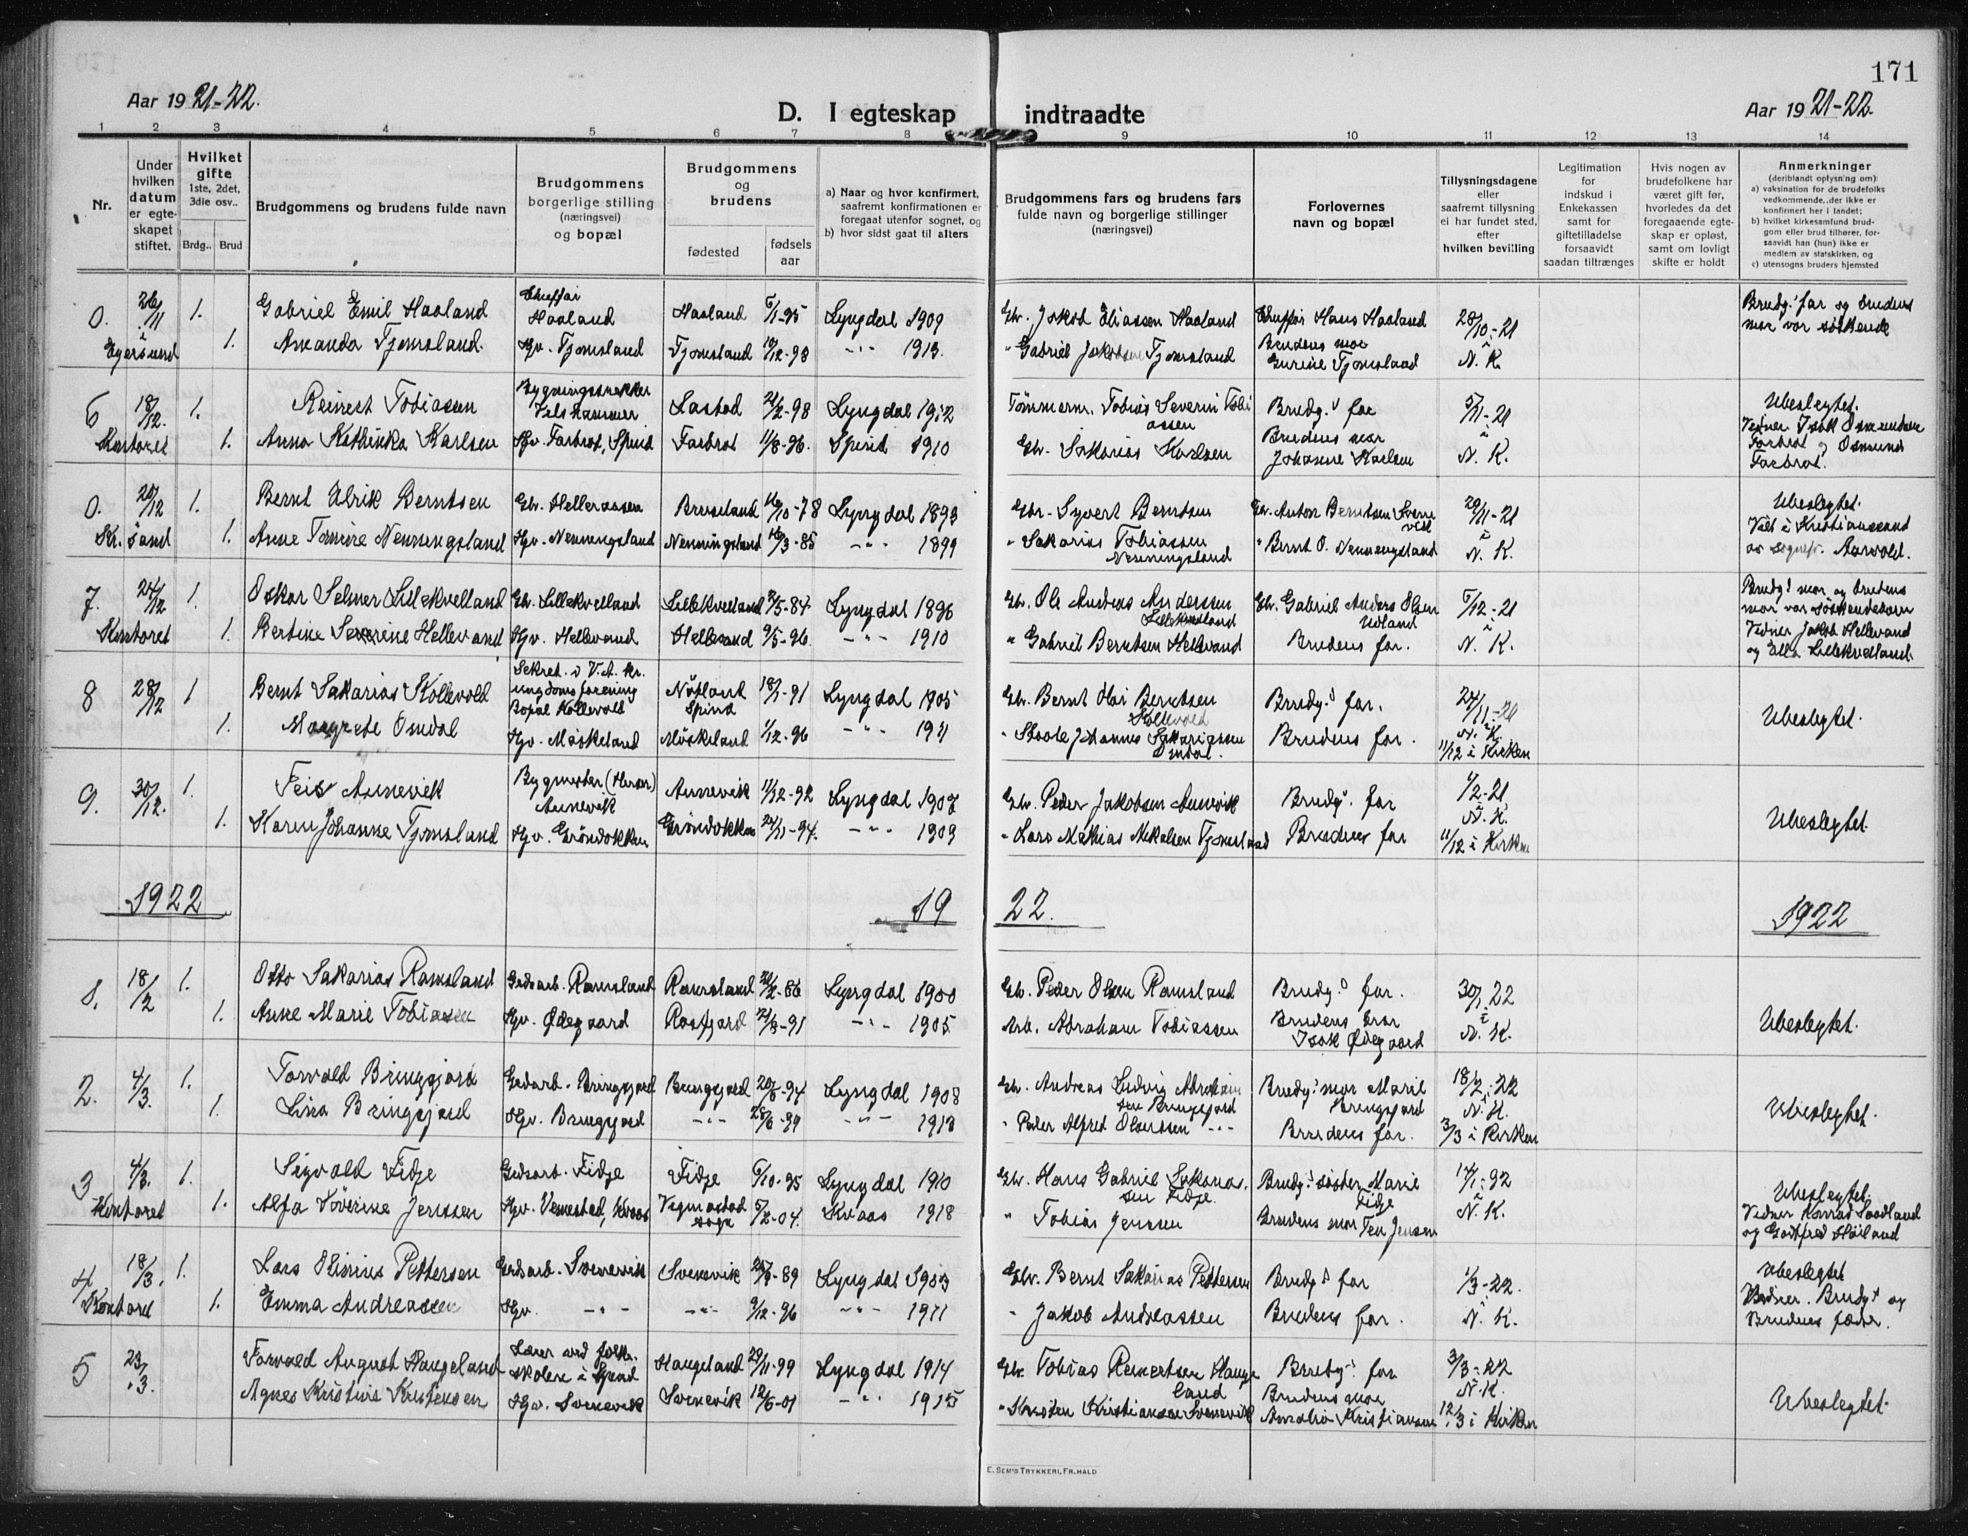 171
Aar 1921-22.
D. I egteskap indtraadte
Aar 1921-22.
1 2 3 4 5 6 7 8 9 10 11 12 13 14
Nr.
Under hvilken datum er egte-skapet stiftet.
Hvilket gifte 1ste, 2det, 3die osv..
Brdg.. Brud
Brudgommens og brudens fulde navn
Brudgommens borgerlige stilling (næringsvei) og bopæl
Brudgommens og brudens
fødested
fødsels aar
a) Naar og hvor konfirmert, saafremt konfirmationen er foregaat utenfor sognet, og
b) hvor sidst gaat til alters
Brudgommens fars og brudens fars fulde navn og borgerlige stillinger (næringsvei)
Forlovernes navn og bopæl
Tillysningsdagene eller saafremt tillysning ei har fundet sted, efter hvilken bevilling
Legitimation for indskud i Enkekassen samt for giftetilladelse forsaavidt saadan tiltrænges
Hvis nogen av brudefolkene har været gift før, hvorledes da det foregaaende egte-skap er opløst, samt om lovligt skifte er holdt
Anmerkninger (deriblandt oplysning om):
a) vaksination for de brudefolks vedkommende, der ikke er konfirmert her i landet;
b) hvilket kirkesamfund brud-gom eller brud tilhører, for-saavidt han (hun) ikke er medlem av statskirken, og
c) utensogns bruders hjemsted
0. 26/11 1. Gabriel Emil Haaland Haaland Haaland 6/1-95 Lyngdal 1909 Gbr. Jakob Eliassen Haaland Hans Haaland 28/10-21 Brudg.s far og brudens mor var søskende
Egersund 1. Amanda Tjomsland Hgv. Tjomsland Tjomsland 10/12-93 -"- 1913 " Gabriel Jakobsen Tjomsland Brudens mor Gurine Tjomsland N. K.
6 18/12. 1. Reinert Tobiassen Lastad 21/2-98 Lyngdal 1912 Tømmerm. Tobias Severin Tobiassen Brudg.s far 5/11-21 Ubeslegtet.
Kontoret 1. Anna Kathinka Karlsen Hgv. Farbrot, Spind Farbrot 11/8-96. Spind 1910 Gbr. Sakarias Karlsen Brudens mor Johanne Karlsen N. K. Farbrot og Osmund Farbrot.
0. 20/12 1. Bernt Ulrik Berntsen Gbr. Helleraasen Bruseland 16/10-78 Lyngdal 1893 Gbr. Syvert Berntsen Gbr. Anton Berntsen Svenevik 29/11-21 Ubeslegtet.
Kr.sand 1. Anne Tomine Nenningsland Hgv. Nenningsland Nenningsland 16/3-85 -"- 1899 " Sakarias Tobiassen Nenningsland " Bernt O. Nenningsland N. K. Viet i Kristianssand av sognepr. Aarvold.
7. 24/12 1. Oskar Selmer Lillekvelland Gbr. Lillekvelland Lillekvelland 21/5-84 Lyngdal 1896 Gbr. Ole Andreas Anderssen Lillekvelland Gbr. Gabriel Anders Olsen 6/12-21 Brudg.s mor og brudens mor var søskendebarn
Kontoret 1. Bertine Severine Hellevand Hgv. Hellevand Hellevand 9/5-96. -"- 1910 " Gabriel Berntsen Hellevand Brudens far. N. K. Vidner Jakob Hellevand og Lillekvelland.
8 28/12 1 Bernt Sakarias Kollevold Sekret. i V.A. kr. ungdomsforening Bopæl Kollevold Nøtland Spind 18/1-91 Lyngdal 1905 Gbr. Bernt Olai Berntsen Kollevold Brudg.s far. 24/11-21 Ubeslegtet.
1. Margrete Omdal Hgv. Møskeland Møskeland 1/12-96 -"- 1911 " Johannes Sakariassen Omdal. Brudens far. N. K. 11/12 i Kirken
9. 30/12. 1. Feis Aunevik Bygmester Aunevik Aunevik 11/12-92 Lyngdal 1907 Gbr. Peder Jakobsen Aunevik Brudg.s far 1/2-21 Ubeslegtet.
1. Karen Johanne Tjomsland Hgv. Grøndokken Grøndokken 24/11-94. -"- 1909 " Lars Mathias Mekalsen Tjomsland Brudens far N. K. 11/12 i Kirken
1922 1922. 1922
1. 18/2 1. Otto Sakarias Ramsland Gardsarb. Ramsland Ramsland 21/2-86 Lyngdal 1900 Gbr. Peder Olsen Ramsland Brudg.s far. 30/1 22 Ubeslegtet.
1. Anne Marie Tobiassen Hgv. Ødegaard Rosfjord 12/3-91 -"- 1905 Arb. Abraham Tobiassen Brudens bror Isak Ødegaard N. K.
2. 4/3. 1. Torvald Bringsjord Gardsarb. Bringsjord Bringsjord 20/6-94 Lyngdal 1908 Gbr. Andreas Ludvig Abrahamsen Bringsjord Brudg.s mor Maria Bringsjord 18/2-22 Ubeslegtet.
1. Lina Bringsjord Hgv. Bringsjord -"- 28/6-99 -"- 1913 " Peder Alfred -"- Brudens far. N. K. 3/3 i Kirken
3 4/3. 1. Sigvald Fidje Gardsarb. Fidje Fidje 6/10-95 Lyngdal 1910 Gbr. Hans Gabriel Sakariassen Fidje. Brudg.s søster Marie Fidje 17/1-22 Ubeslegtet.
Kontoret 1. Alfa Tøverine Jenssen Hgv. Vemestad, Kvaas Vegmostad sogn 5/2-04. Kvaas 1918 " Tobias Jensen Brudens mor Tea Jensen N. K. Vidner Konrad Saadland og Godtfred Høiland
4 18/3. 1. Lars Olinius Pettersen Gardsarb. Svenevik Svenevik 24/8-89 Lyngdal 1903 Gbr. Bernt Sakarias Pettersen Brudg.s far 1/3-22. Ubeslegtet
Kontoret 1. Emma Andreassen Hgv. -"- -"- 9/12-96 -"- 1911 " Jakob Andreassen Brudens far. N. K. Vidner. Brudg.s og Brudens fædre.
5 23/3. Torvald August Haugeland Lærer ved folkeskolen i Spind Haugeland 29/11-99 Lyngdal 1914 Gbr. Tobias Reinertsen Haugeland Brudg.s far 3/3-22 Ubeslegtet.
Agnes Kristine Kristensen Hgv. Svenevik Svenevik 12/6-01 -"- 1915 " Kristen Kristiansen Svenevik Brudens mor Amalia Kristiansen N. K. 12/3 i Kirken
E. SEM'S TRYKKERI, FR.HALD